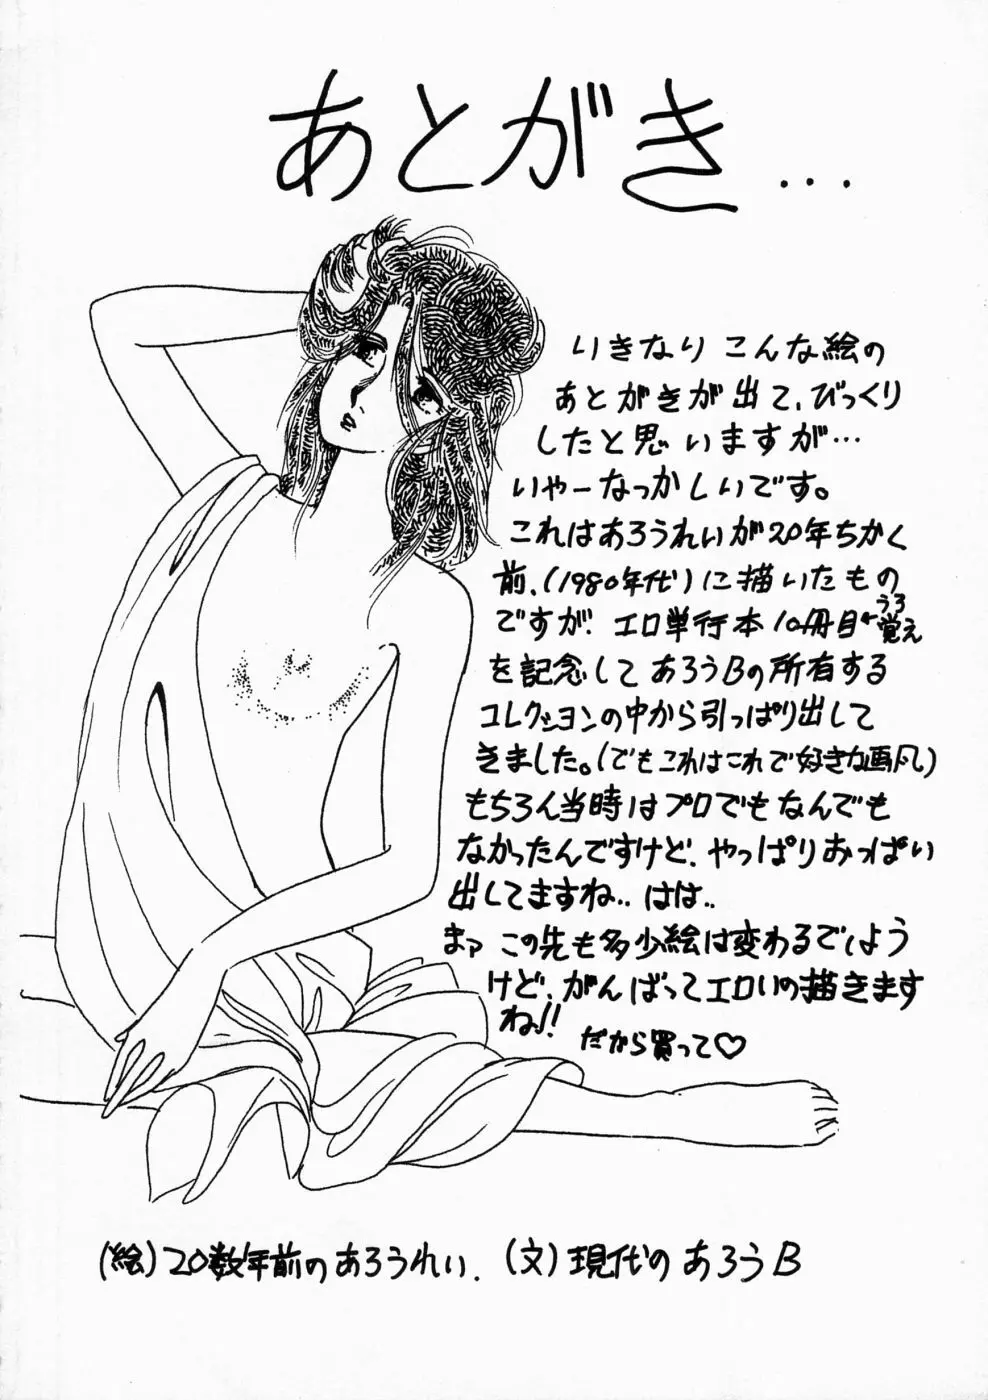 あとがき...
いきなり こんな絵の
あとがきが出て、びっくり
したと思いますが…
いやーなっかしいです。
これはあろうれいが20年ちかく
前、(1980年代)に描いたもの
ですが、エロ単行本10冊目 うろ覚え
を記念してあろうBの所有する
コレクションの中から引っぱり出して
きました。(でもこれはこれで好きな画風)
もちろん当時はプロでもなんでも
なかったんですけど、やっぱりおっぱい
出してますね.. はは..
まァ この先も多少絵は変わるでしょう
けど、がんばってエロいの描きます
ね!!
だから買って♡
(絵)20数年前のあろうれい. (文)現代のあろうB